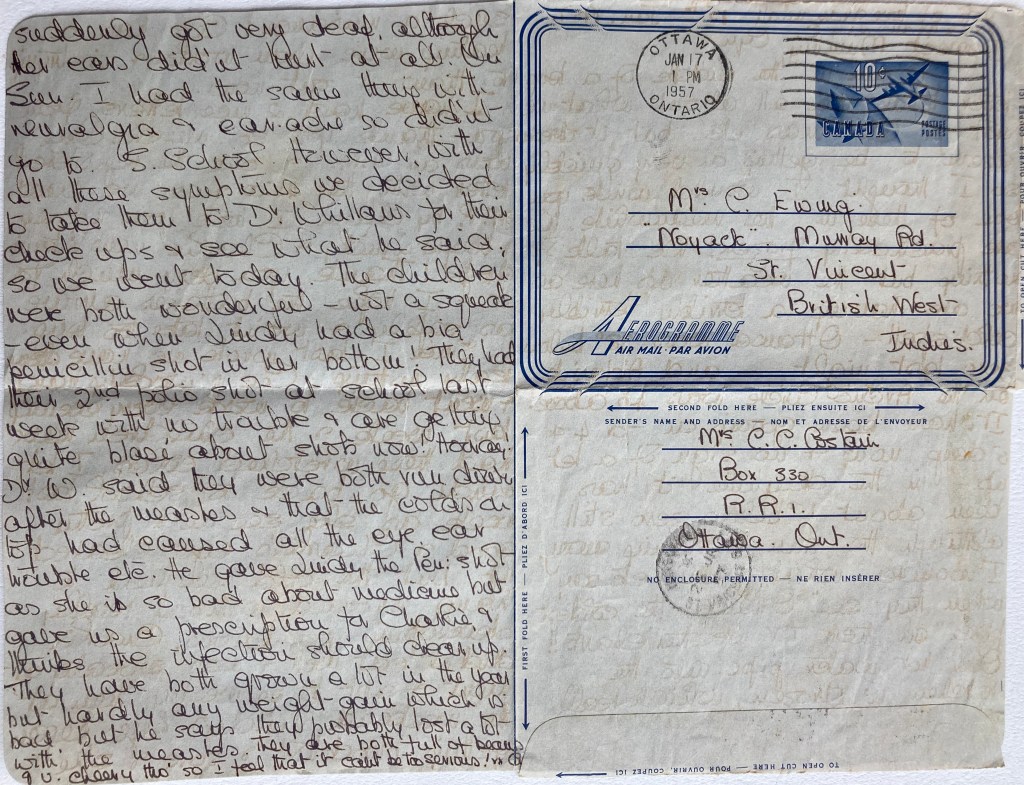 suddenly got very deaf, although
her ears didn't hurt at all. On
Sun. I had the same thing with
neuralgia & ear-ache so didn't
go to S. School. However, with
all these symptoms we decided
to take them to Dr. Whillans for their
check ups & see what he said,
so we went today. The children
were both wonderful – not a squeak
– even when Lindy had a big
penicillin shot in her bottom! They had
their 2nd polio shot at school last
week with no trouble & are getting
quite blasé about shots now! However,
Dr. W. said they were both run down
after the measles & that the colds on
top had caused all the eye, ear
trouble etc. He gave Lindy the Pen: shot
as she is so bad about medicine but
gave us a prescription for Charlie, &
thinks the infection should clear up.
They have both grown a lot in the year
but hardly any weight gain which is
bad but he says they probably lost a lot
with the measles. They are both full of beans
& v. cheery tho' so I feel that it can't be too serious!
OTTAWA
JAN 17
1 PM
1957
ONTARIO
10¢
CANADA
POSTAGE
POSTES
Mrs C. Ewing.
"Noyack". Murray Rd.
St. Vincent
British West
Indies.
AEROGRAMME
AIR MAIL · PAR AVION
SECOND FOLD HERE — PLIEZ ENSUITE ICI
SENDER'S NAME AND ADDRESS — NOM ET ADRESSE DE L'ENVOYEUR
Mrs. C. C. Costain
Box 330
R.R.1.
Ottawa. Ont.
NO ENCLOSURE PERMITTED — NE RIEN INSÉRER
FIRST FOLD HERE — PLIEZ D'ABORD ICI
TO OPEN CUT HERE — POUR OUVRIR, COUPEZ ICI